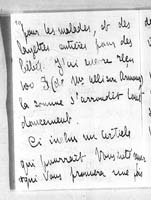 pour les malades, et des
layettes entières pour des
bébés. J'ai encore reçu
100 $ (de Mr
la somme s'arrondit tout
doucement.
Ci inclu un
qui pourrait
vous prouvera une fois